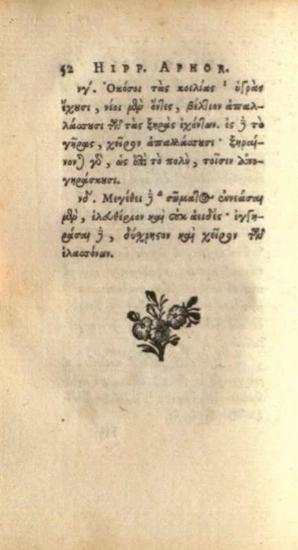 52 HIPP. APHOR.
νγʹ. Ὁκόσοι τὰς κοιλίας ὑγρὰς
ἔχουσι, νέοι μὲν ὄντες, βέλτιον ἀπαλ-
λάσσουσι τῶν τὰς ξηρὰς ἐχόντων. ἐς δὲ τὸ
γῆρας, χεῖρον ἀπαλλάσσουσι· ξηραί-
νονται γὰρ, ὡς ἐπὶ τὸ πολὺ, τοῖσιν ἀπο-
γηράσκουσι.
νδʹ. Μεγέθει δὲ σώματος ἐννεάσαι
μὲν, ἐλευθέριον καὶ οὐκ ἀειδές· ἐγγη-
ράσαι δὲ, δύχρηστον καὶ χεῖρον τῶν
ἐλασσόνων.